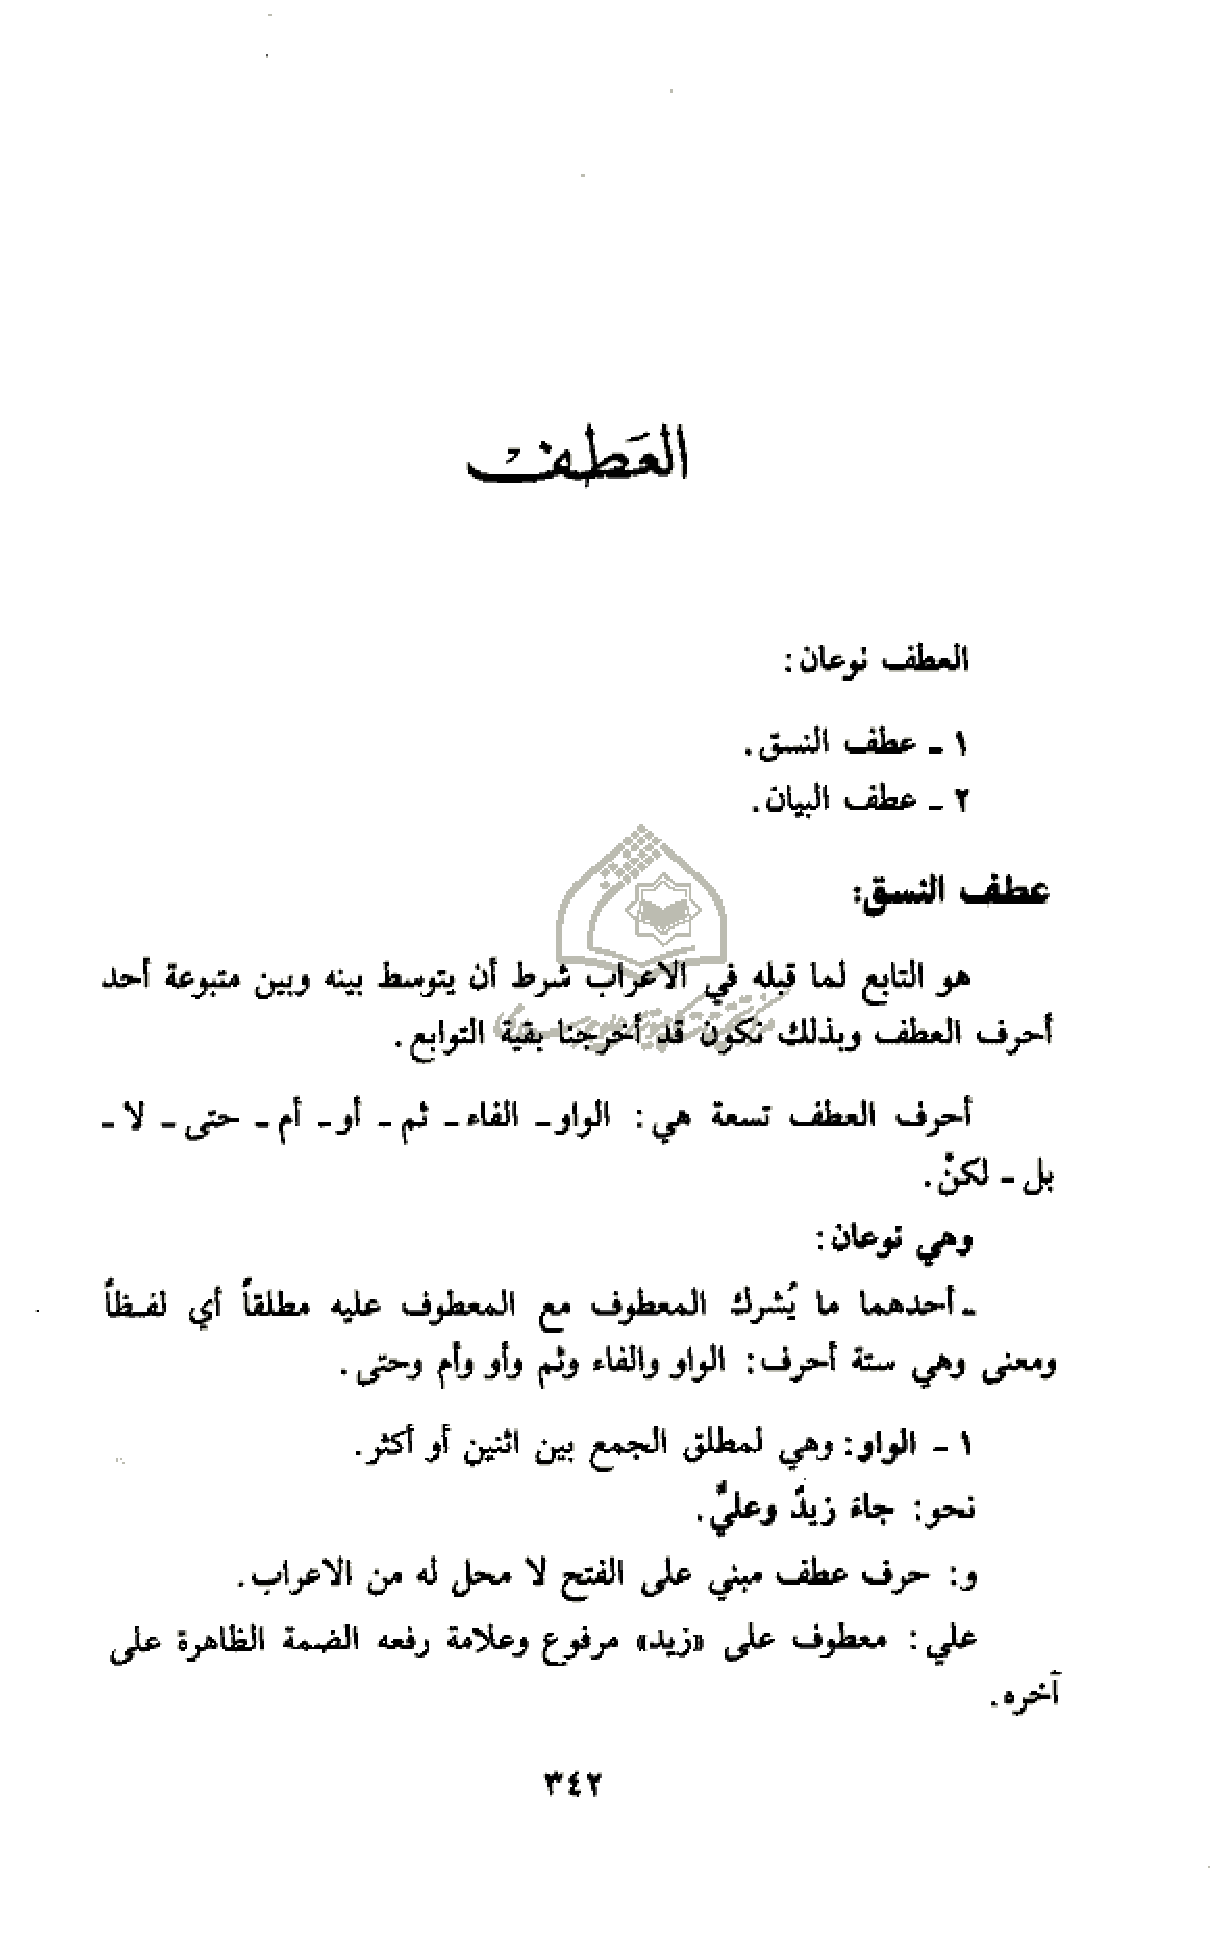 العَطف
العطف نوعان:
١ ـ عطف النسق.
٢ ـ عطف البيان.
عطف النسق:
هو التابع لما قبله في الاعراب شرط أن يتوسط بينه وبين متبوعة أحد
أحرف العطف وبذلك نكون قد أخرجنا بقية التوابع.
أحرف العطف تسعة هي: الواو ـ الفاء ـ ثم ـ أو ـ أم ـ حتى ـ لا ـ
بل ـ لكنْ.
وهي نوعان:
ـ أحدهما ما يُشرك المعطوف مع المعطوف عليه مطلقاً أي لفـظاً
ومعنى وهي ستة أحرف: الواو والفاء وثم وأو وأم وحتى.
١ ـ الواو: وهي لمطلق الجمع بين اثنين أو أكثر.
نحو: جاءَ زيدٌ وعليٌّ.
و: حرف عطف مبني على الفتح لا محل له من الاعراب.
علي: معطوف على «زيد» مرفوع وعلامة رفعه الضمة الظاهرة على
آخره.
٣٤٢